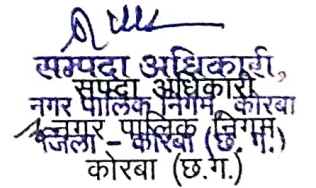 सम्पदा अधिकारी,
सपदा अधिकारी
नगर पालिक निगम, कोरबा
नगर पालिक निगम
जिला - कोरबा (छ. ग.)
कोरबा (छ.ग.)